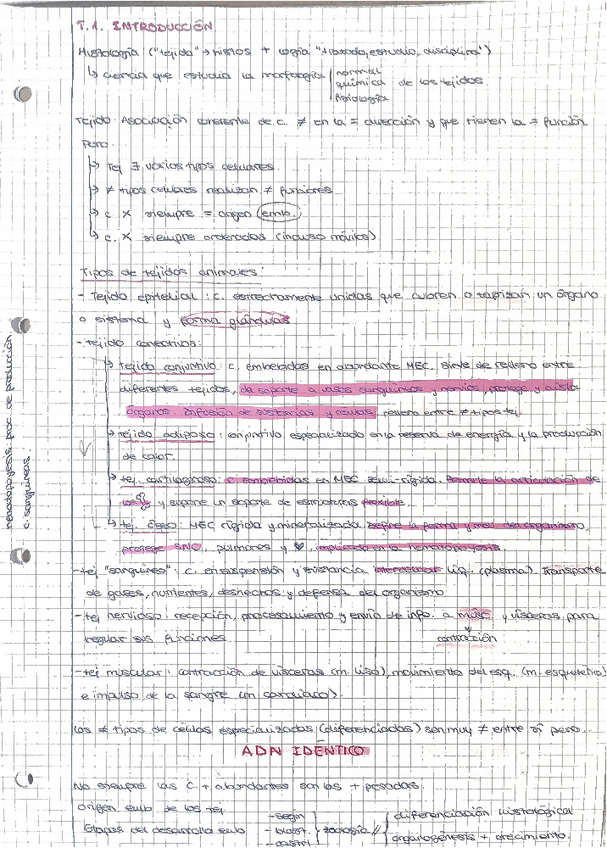 T.1. INTRODUCCIÓN
Histología ("tejido" → histos + logía "tratado, estudio, disciplina")
↳ ciencia que estudia la morfología normal
química de los tejidos.
fisiología
Tejido: Asociación coherente de c. ≠ en la = dirección y que tienen la = función.
Pero:
↳ Tej ∃ varios tipos celulares.
↳ ≠ tipos celulares realizan ≠ funciones
↳ c. X siempre = origen (emb.)
↳ c. X siempre ordenados (incluso móviles)
Tipos de tejidos animales:
- Tejido epitelial: c. estrechamente unidas que cubren o tapizan un órgano
o sistema y forma glándulas
- tejido conectivos:
→ Tejido conjuntivo: c. embebidas en abundante MEC. Sirve de relleno entre
diferentes tejidos, da soporte a vasos sanguíneos y nervios, protege y aísla
órganos. Difusión de sustancias y células, relleno entre ≠ tipos tej.
→ tejido adiposo: conjuntivo especializado en la reserva de energía y la producción
de calor.
→ tej. cartilaginoso: c. embebidas en MEC semi-rígida. Permite la articulación de
y supone un soporte de estructuras flexible.
→ tej. óseo: MEC rígida y mineralizada. Define la forma y mov. del organismo,
protege SNC, pulmones y ♥, implicado en la hematopoyesis.
hematopoyesis proc. de producción
c. sanguíneas.
- tej "sanguíneo": c. en suspensión y sustancia intercelular líq. (plasma). Transporte
de gases, nutrientes, deshechos y defensa del organismo
- tej nervioso: recepción, procesamiento y envío de info. a músc. y vísceras para
regular sus funciones
contracción
- tej muscular: contracción de vísceras (m. liso), movimiento del esq. (m. esquelético)
e impulso de la sangre (m cardiaco).
Los ≠ tipos de células especializadas (diferenciadas) son muy ≠ entre sí pero...
ADN IDÉNTICO
No siempre las c + abundantes son las + pesadas.
Origen emb de los tej.
Etapas del desarrollo emb
- segm
- blast.
- gastr
zoología //
diferenciación histológica
organogénesis + crecimiento.